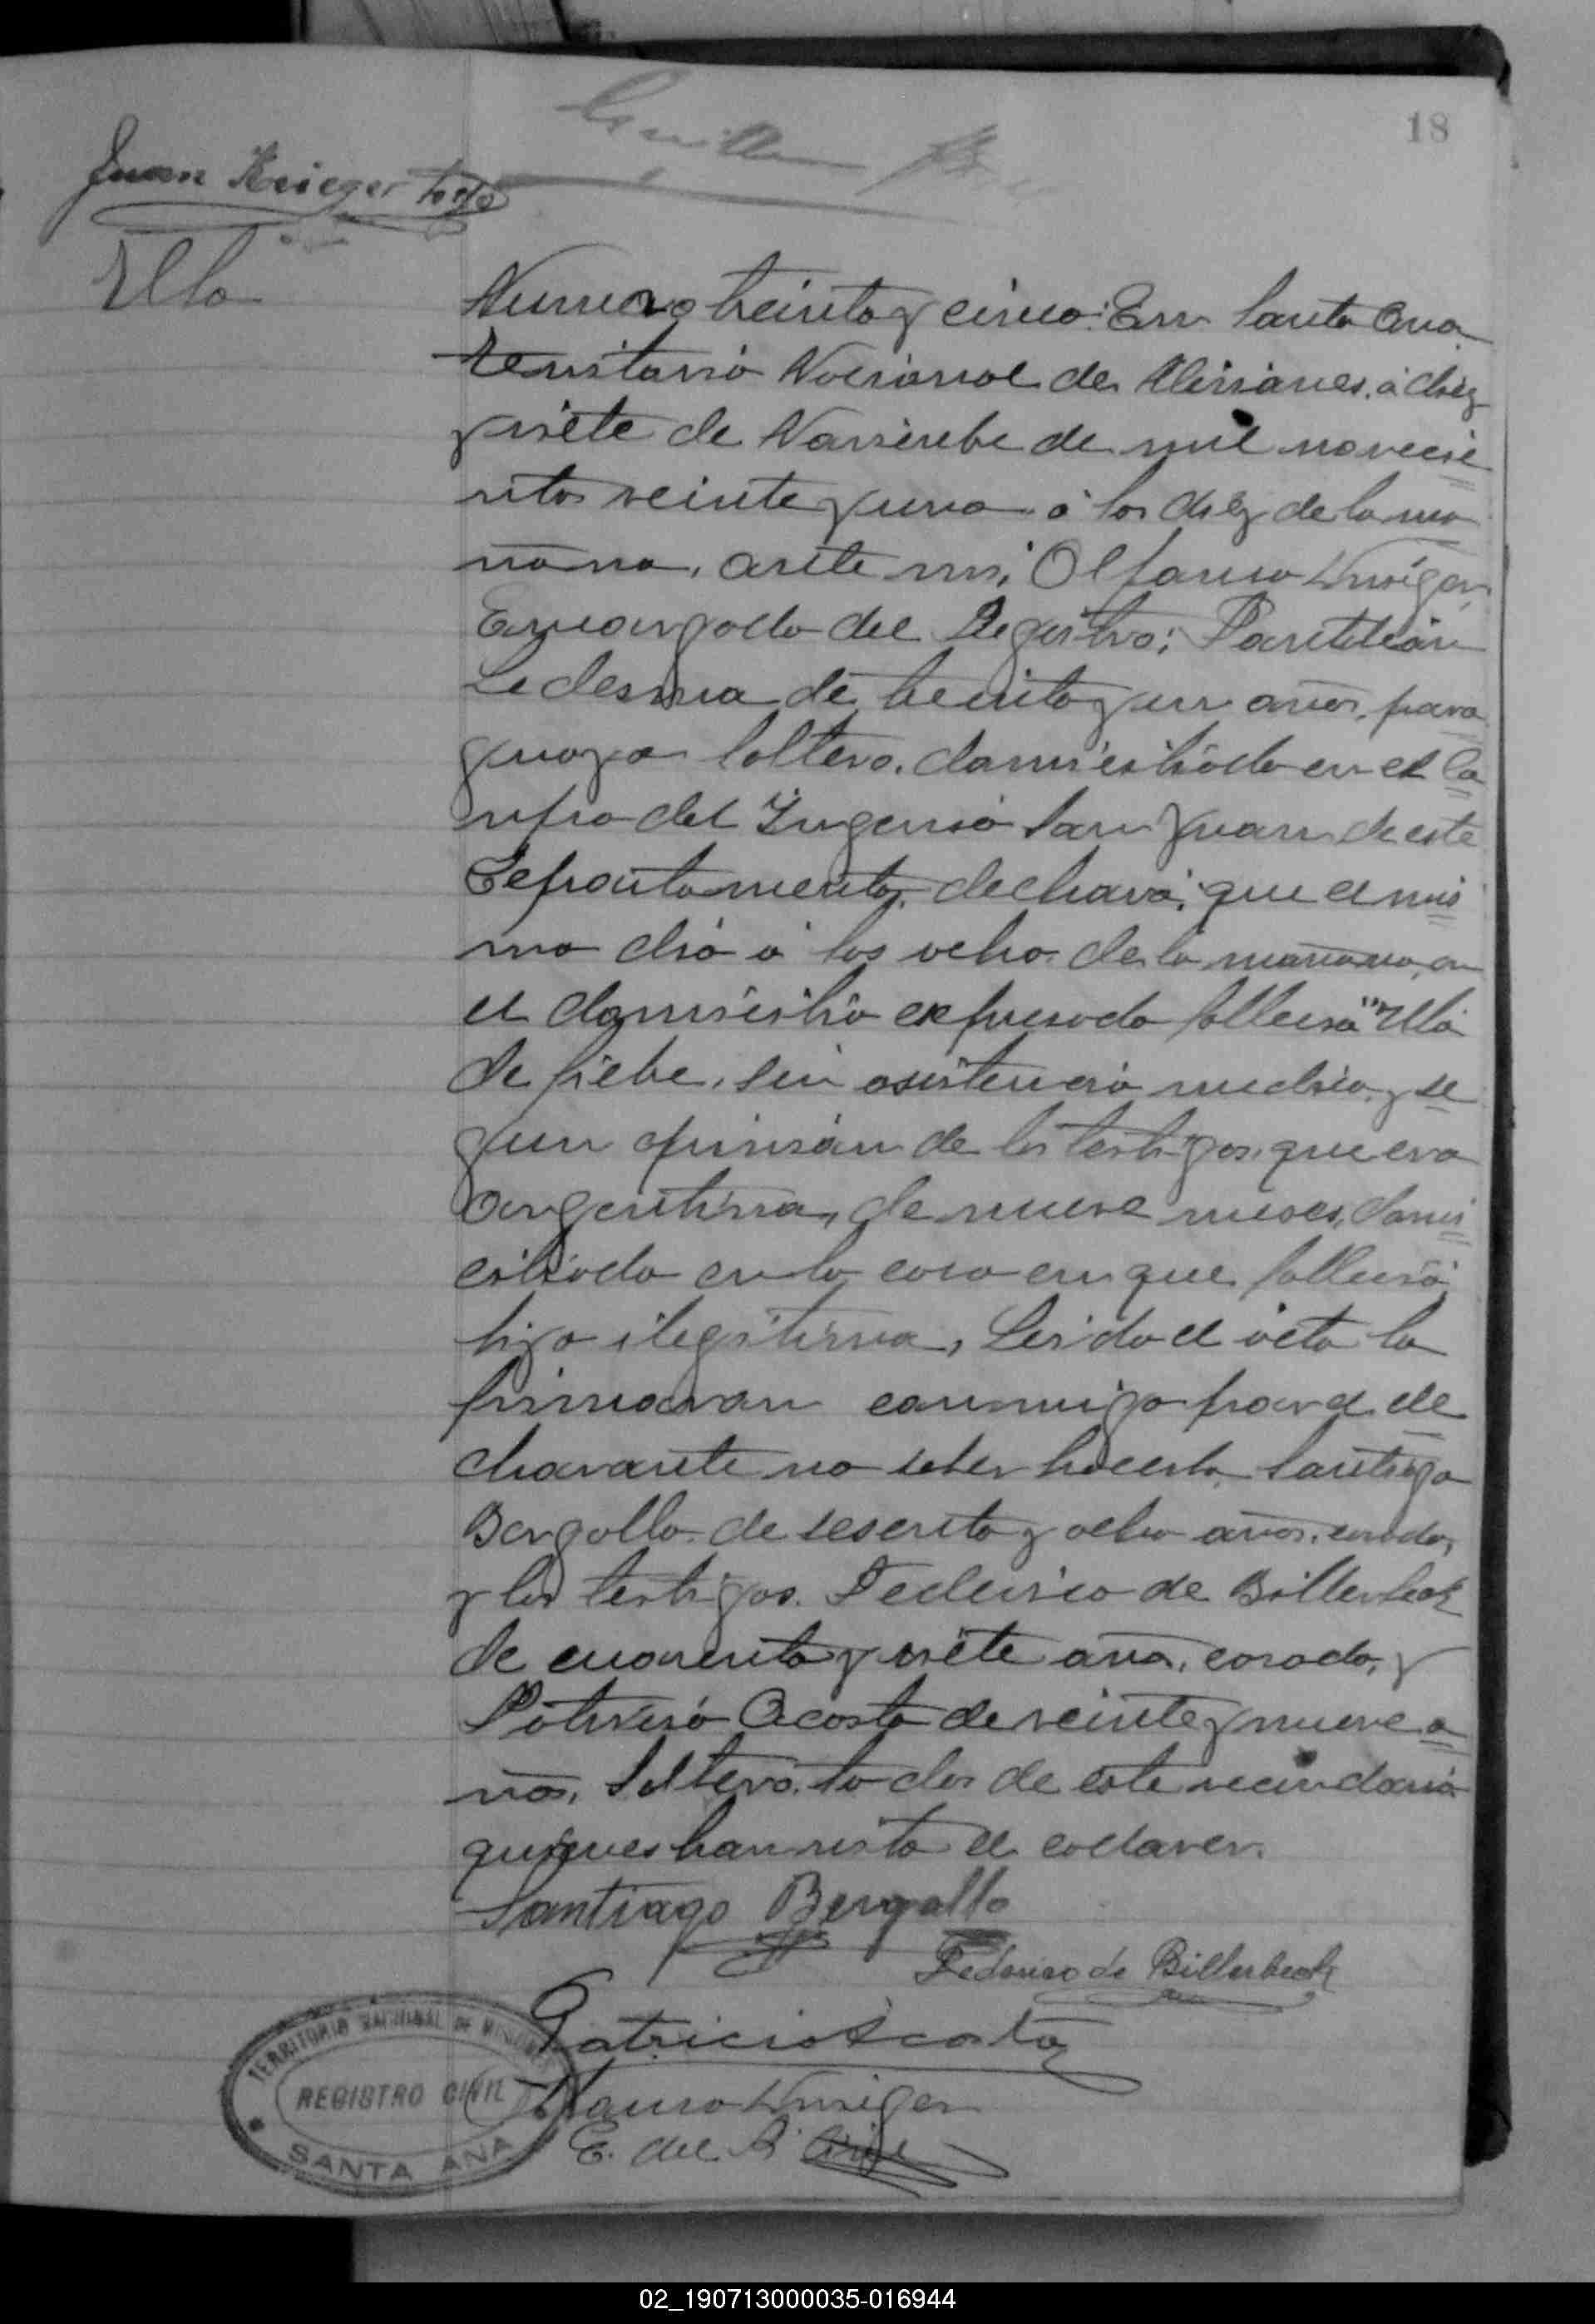 18
Juan Krieger testgo
Ella
Numero treinta y cinco: En Santa Ana
Territorio Nacional de Misiones, a diez
y siete de Noviembre de mil novecie
ntos veinte y uno a las diez de la ma
ñana, ante mi,
Encargado del Registro; Pantaleón
Ledesma de treinta y un años, para
guayo soltero, domiciliado en el Ca
mpo del Ingenio San Juan de este
Departamento, declaró; que el mis
mo dia a las ocho de la mañana, en
el domicilio expresado falleció "Ella
de fiebre, sin asistencia medica, y se
gun opinión de los testigos, que era
argentina, de nueve meses, domi
ciliada en la casa en que falleció,
hija ilegitima, Leida el acta la
firmaron conmigo por el de
clarante no saber hacerlo, Santiago
Bergallo de sesenta y ocho años, casado,
y los testigos. Federico de Billerbeck
de cuarenta y siete años, casado, y
Patricio Acosta de veinte y nueve a
ños, soltero, todos de este vecindario
quienes han visto el cadaver.
Santiago Bergallo
Federico de Billerbeck
Patricio Acosta
E. del R. Civil
TERRITORIO NACIONAL DE MISIONES
REGISTRO CIVIL
SANTA ANA
02_190713000035-016944